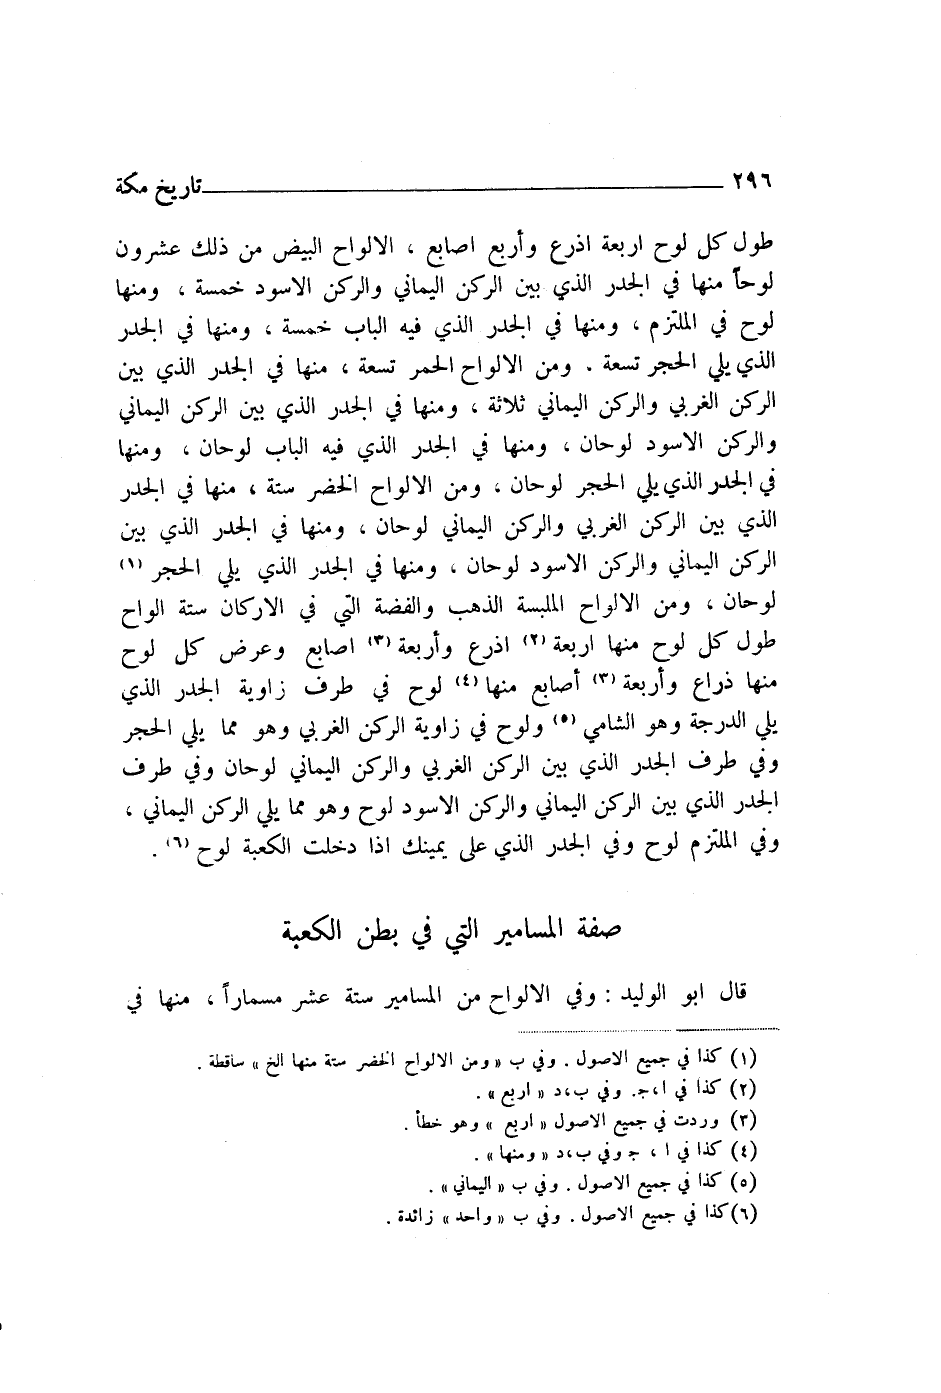 ٢٩٦ تاريخ مكة
طول كل لوح اربعة اذرع وأربع اصابع ، الالواح البيض من ذلك عشرون
لوحاً منها في الجدر الذي بين الركن اليماني والركن الاسود خمسة ، ومنها
لوح في الملتزم ، ومنها في الجدر الذي فيه الباب خمسة ، ومنها في الجدر
الذي يلي الحجر تسعة . ومن الالواح الحمر تسعة ، منها في الجدر الذي بين
الركن الغربي والركن اليماني ثلاثة ، ومنها في الجدر الذي بين الركن اليماني
والركن الاسود لوحان ، ومنها في الجدر الذي فيه الباب لوحان ، ومنها
في الجدر الذي يلي الحجر لوحان ، ومن الالواح الخضر ستة ، منها في الجدر
الذي بين الركن الغربي والركن اليماني لوحان ، ومنها في الجدر الذي بين
الركن اليماني والركن الاسود لوحان ، ومنها في الجدر الذي يلي الحجر (١)
لوحان ، ومن الالواح الملبسة الذهب والفضة التي في الاركان ستة الواح
طول كل لوح منها اربعة (٢) اذرع وأربعة (٣) اصابع وعرض كل لوح
منها ذراع وأربعة (٣) أصابع منها (٤) لوح في طرف زاوية الجدر الذي
يلي الدرجة وهو الشامي (٥) ولوح في زاوية الركن الغربي وهو مما يلي الحجر
وفي طرف الجدر الذي بين الركن الغربي والركن اليماني لوحان وفي طرف
الجدر الذي بين الركن اليماني والركن الاسود لوح وهو مما يلي الركن اليماني ،
وفي الملتزم لوح وفي الجدر الذي على يمينك اذا دخلت الكعبة لوح (٦) .
صفة المسامير التي في بطن الكعبة
قال ابو الوليد : وفي الالواح من المسامير ستة عشر مسماراً ، منها في
(١) كذا في جميع الاصول . وفي ب « ومن الالواح الخضر ستة منها الخ » ساقطة .
(٢) كذا في ا ، ج. وفي ب ، د « اربع » .
(٣) وردت في جميع الاصول « اربع » وهو خطأ .
(٤) كذا في ا ، ج وفي ب ، د « ومنها » .
(٥) كذا في جميع الاصول . وفي ب « اليماني » .
(٦) كذا في جميع الاصول . وفي ب « واحد » زائدة .